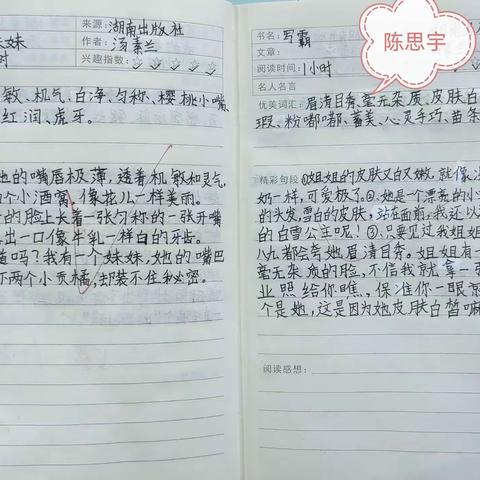 来源：湖南出版社
妹妹
作者：汤素兰
时
兴趣指数：
敏、机气、白净、匀称、樱桃小嘴、
红润、虎牙。
她的嘴唇极薄，透着机敏和灵气，
个小酒窝，像花儿一样美丽。
的脸上长着一张匀称的一张开嘴
出一口像牛乳一样白的牙齿。
道吗？我有一个妹妹，她的嘴巴
下两个小贡橘，却装不住秘密。
陈思宇
书名：写霸
文章：
阅读时间：1小时
名人名言
优美词汇：眉清目秀、毫无杂质、皮肤白
瑕、粉嘟嘟、蓄美、心灵手巧、苗条
精彩句段：①姐姐的皮肤又白又嫩，就像
奶一样，可爱极了。②、她是一个漂亮的小
的头发，雪白的皮肤，站在面前，我还以
的白雪公主呢！③、只要见过我姐姐
八九都会夸她眉清目秀。姐姐有一
毫无杂质的脸，不信我就拿一张
业照给你瞧，保准你一眼就
个是她，这是因为她皮肤白皙嘛
阅读感想：